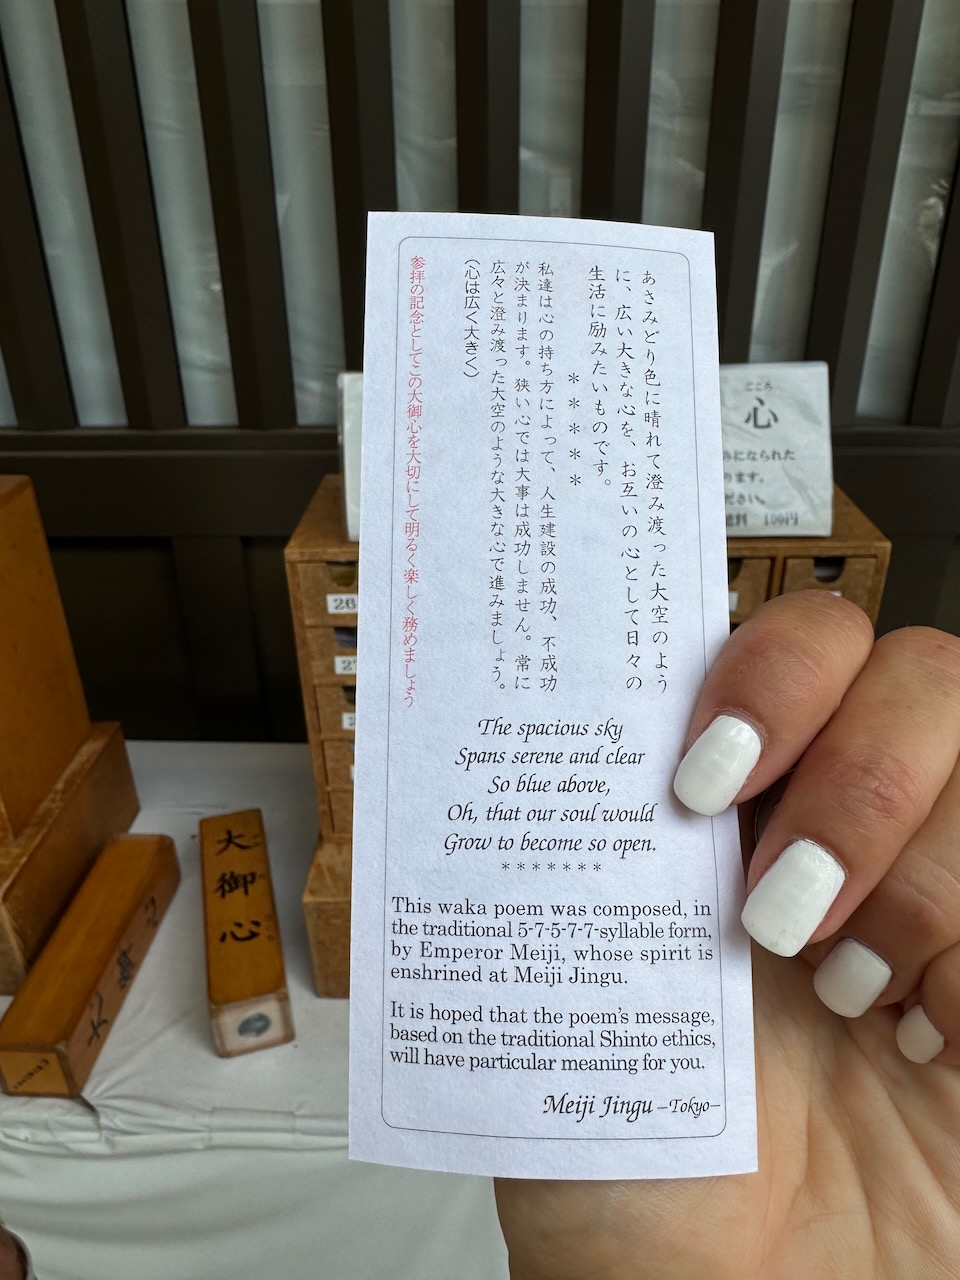 あさみどり色に晴れて澄み渡った大空のよう
に、広い大きな心を、お互いの心として日々の
生活に励みたいものです。
＊＊＊＊＊
私達は心の持ち方によって、人生建設の成功、不成功
が決まります。狭い心では大事は成功しません。常に
広々と澄み渡った大空のような大きな心で進みましょう。
（心は広く大きく）
参拝の記念としてこの大御心を大切にして明るく楽しく務めましょう
The spacious sky
Spans serene and clear
So blue above,
Oh, that our soul would
Grow to become so open.
*******
This waka poem was composed, in
the traditional 5-7-5-7-7-syllable form,
by Emperor Meiji, whose spirit is
enshrined at Meiji Jingu.
It is hoped that the poem's message,
based on the traditional Shinto ethics,
will have particular meaning for you.
Meiji Jingu –Tokyo–
こころ
心
になられた
ます。
ださい。
料 100円
26
大御心